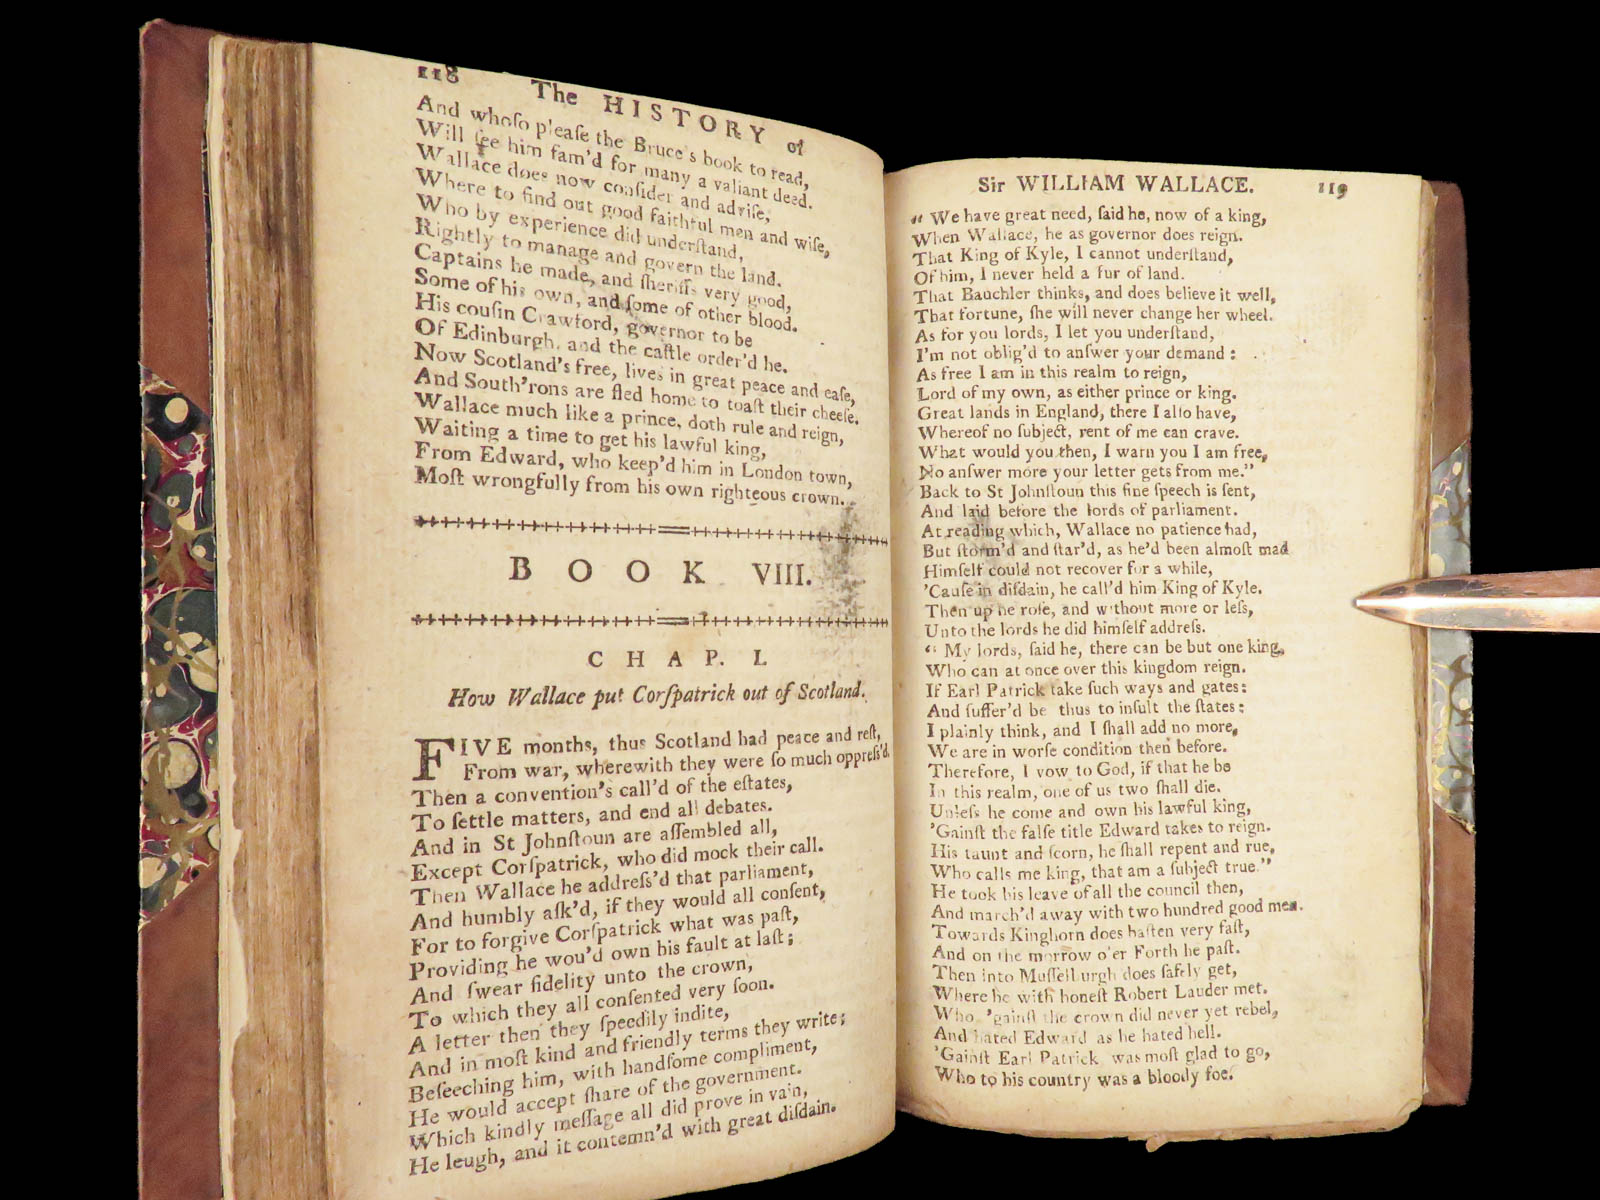 118 The HISTORY of
And whoſo pleaſe the Bruce's book to read,
Will ſee him fam'd for many a valiant deed.
Wallace does now conſider and adviſe,
Where to find out good faithful men and wiſe,
Who by experience did underſtand,
Rightly to manage and govern the land.
Captains he made, and ſheriffs very good,
Some of his own, and ſome of other blood.
His couſin Crawford, governor to be
Of Edinburgh, and the caſtle order'd he.
Now Scotland's free, lives in great peace and eaſe,
And South'rons are fled home to toaſt their cheeſe.
Wallace much like a prince, doth rule and reign,
Waiting a time to get his lawful king,
From Edward, who keep'd him in London town,
Moſt wrongfully from his own righteous crown.
BOOK VIII.
CHAP. I.
How Wallace put Corſpatrick out of Scotland.
FIVE months, thus Scotland had peace and reſt,
From war, wherewith they were ſo much oppreſs'd.
Then a convention's call'd of the eſtates,
To ſettle matters, and end all debates.
And in St Johnſtoun are aſſembled all,
Except Corſpatrick, who did mock their call.
Then Wallace he addreſs'd that parliament,
And humbly aſk'd, if they would all conſent,
For to forgive Corſpatrick what was paſt,
Providing he wou'd own his fault at laſt;
And ſwear fidelity unto the crown,
To which they all conſented very ſoon.
A letter then they ſpeedily indite,
And in moſt kind and friendly terms they write;
Beſeeching him, with handſome compliment,
He would accept ſhare of the government.
Which kindly meſſage all did prove in vain,
He leugh, and it contemn'd with great diſdain.
Sir WILLIAM WALLACE. 119
“ We have great need, ſaid he, now of a king,
When Wallace, he as governor does reign.
That King of Kyle, I cannot underſtand,
Of him, I never held a fur of land.
That Bauchler thinks, and does believe it well,
That fortune, ſhe will never change her wheel.
As for you lords, I let you underſtand,
I'm not oblig'd to anſwer your demand :
As free I am in this realm to reign,
Lord of my own, as either prince or king.
Great lands in England, there I alſo have,
Whereof no ſubject, rent of me can crave.
What would you then, I warn you I am free,
No anſwer more your letter gets from me.”
Back to St Johnſtoun this fine ſpeech is ſent,
And laid before the lords of parliament.
At reading which, Wallace no patience had,
But ſtorm'd and ſtar'd, as he'd been almoſt mad
Himſelf could not recover for a while,
'Cauſe in diſdain, he call'd him King of Kyle.
Then up he roſe, and without more or leſs,
Unto the lords he did himſelf addreſs.
“ My lords, ſaid he, there can be but one king,
Who can at once over this kingdom reign.
If Earl Patrick take ſuch ways and gates:
And ſuffer'd be thus to inſult the ſtates:
I plainly think, and I ſhall add no more,
We are in worſe condition then before.
Therefore, I vow to God, if that he be
In this realm, one of us two ſhall die.
Unleſs he come and own his lawful king,
'Gainſt the falſe title Edward takes to reign.
His taunt and ſcorn, he ſhall repent and rue,
Who calls me king, that am a ſubject true.”
He took his leave of all the council then,
And march'd away with two hundred good men.
Towards Kinghorn does haſten very faſt,
And on the morrow o'er Forth he paſt.
Then into Muſſelburgh does ſafely get,
Where he with honeſt Robert Lauder met.
Who, 'gainſt the crown did never yet rebel,
And hated Edward as he hated hell.
'Gainſt Earl Patrick was moſt glad to go,
Who to his country was a bloody foe.